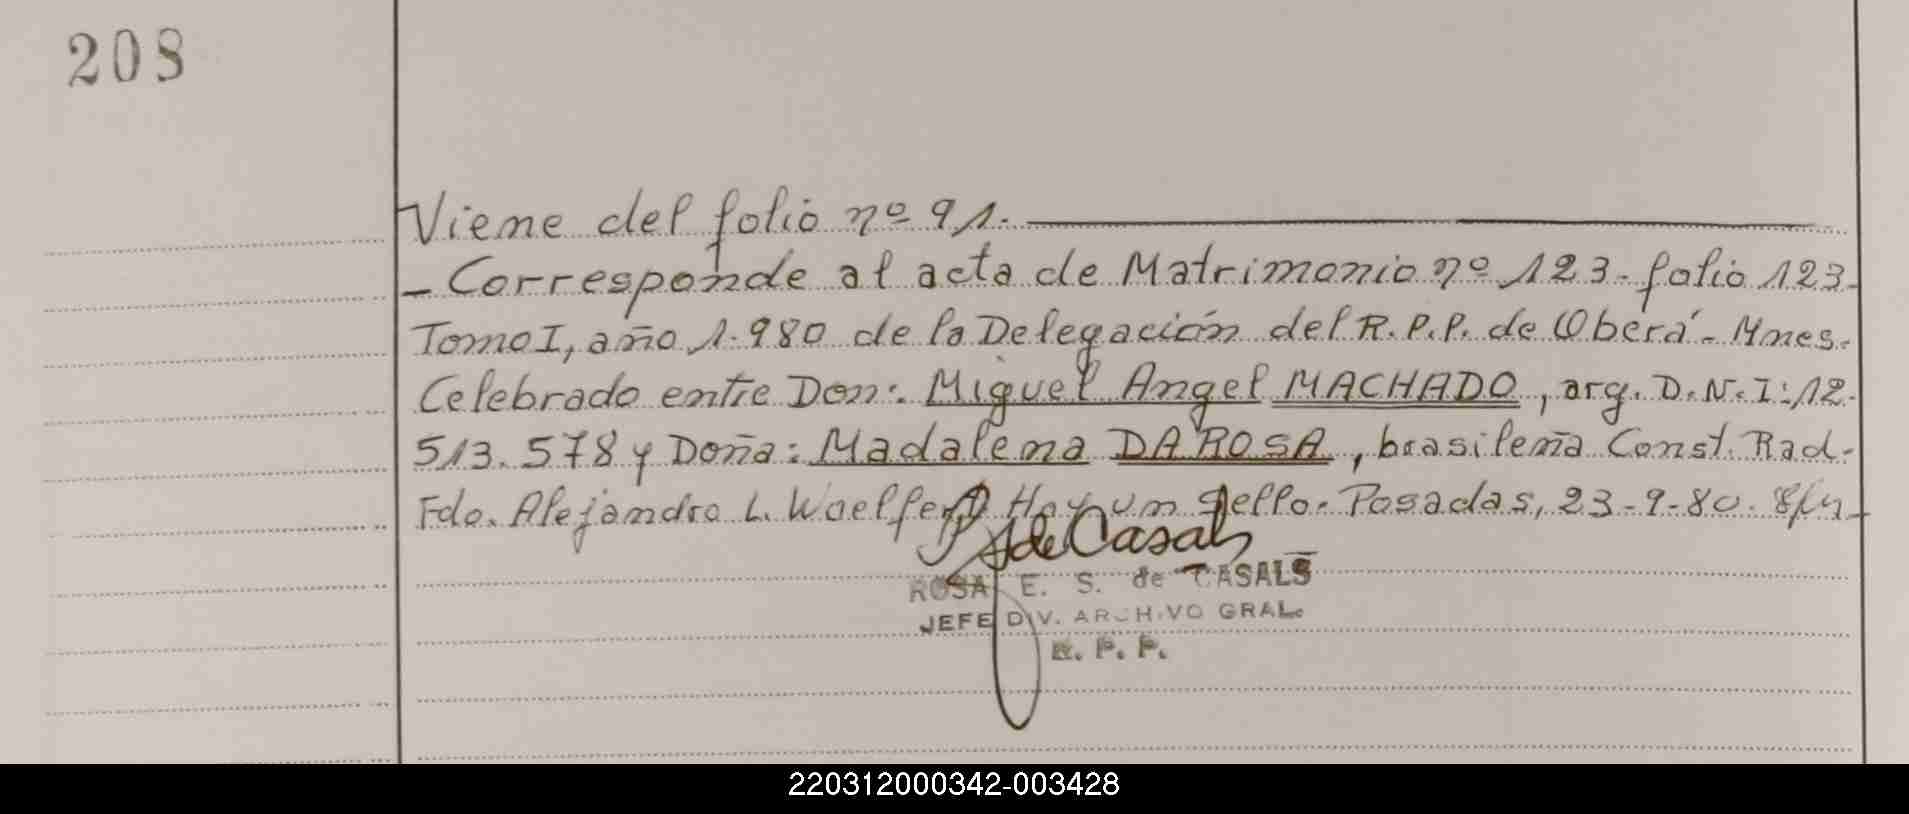 208
Viene del folio nº 91.
- Corresponde al acta de Matrimonio nº 123 - folio 123-
Tomo I, año 1.980 de la Delegación del R.P.P. de Oberá - Mnes.
Celebrado entre Don: Miguel Angel MACHADO, arg. D.N.I: 12.
513.578 y Doña: Madalena DA ROSA, brasileña Const. Rad.
Fdo. Alejandro L. Woelfert Hay un sello. Posadas, 23-9-80.
de Casals
ROSA E. S. de CASALS
JEFE DIV. ARCHIVO GRAL.
R. P. P.
220312000342-003428